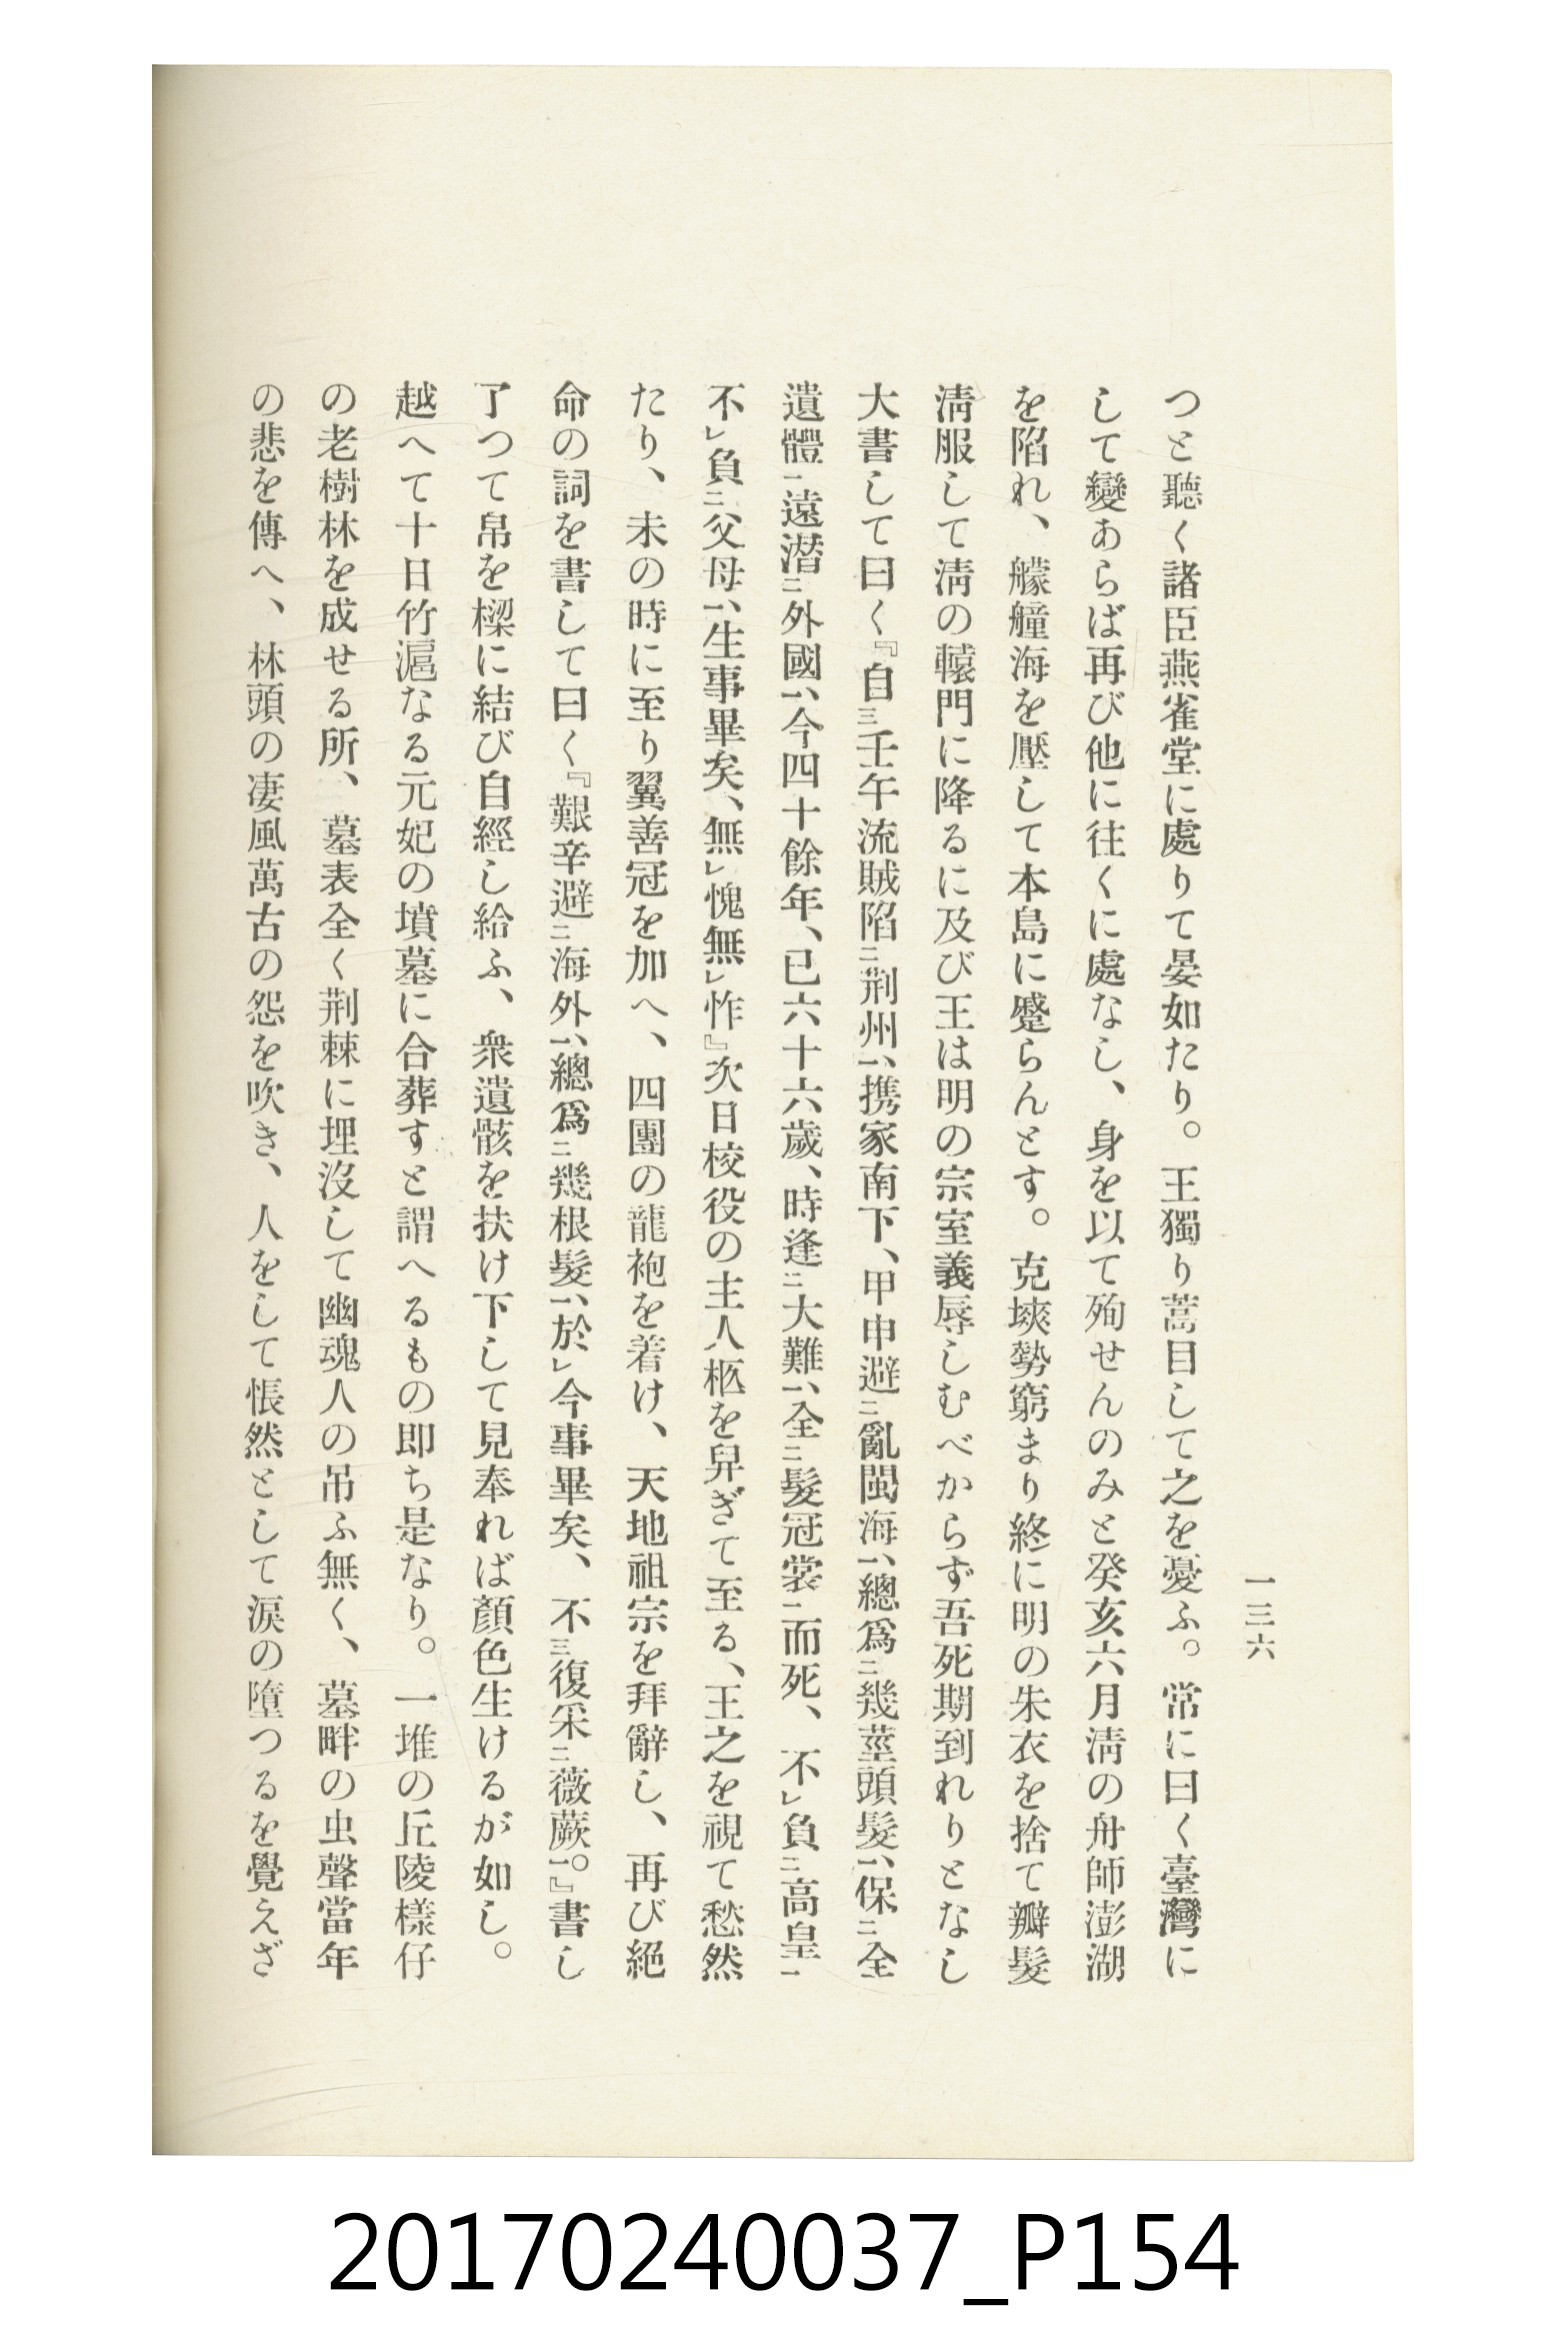 一三六
つと聽く諸臣燕雀堂に處りて晏如たり。王獨り蒿目して之を憂ふ。常に曰く臺灣に
して變あらば再び他に往くに處なし、身を以て殉せんのみと癸亥六月淸の舟師澎湖
を陷れ、艨艟海を壓して本島に蹙らんとす。克塽勢窮まり終に明の朱衣を捨て瓣髮
淸服して淸の轅門に降るに及び王は明の宗室義辱しむべからず吾死期到れりとなし
大書して曰く『自㆔壬午流賊陷㆓荆州㆒、携家南下、甲申避㆓亂閩海㆒、總爲㆓幾莖頭髮㆒、保㆓全
遺體㆒遠潜㆓外國㆒、今四十餘年、已六十六歲、時逢㆓大難㆒、全㆓髮冠裳㆓而死、不㆑負㆓高皇㆒
不㆑負㆓、父母㆒、生事畢矣、無㆑愧無㆑怍』次日校役の主人柩を舁ぎて至る、王之を視て愁然
たり、未の時に至り翼善冠を加へ、四團の龍袍を着け、天地祖宗を拜辭し、再び絕
命の詞を書して曰く『艱辛避㆓海外㆒、總爲㆓幾根髮㆒、於㆑今事畢矣、不㆔復采㆓薇蕨㆒。』書し
了つて帛を樑に結び自經し給ふ、衆遺骸を扶け下して見奉れば顏色生けるが如し。
越へて十日竹滬なる元妃の墳墓に合葬すと謂へるもの卽ち是なり。一堆の丘陵樣仔
の老樹林を成せる所、墓表全く荆棘に埋沒して幽魂人の吊ふ無く、墓畔の虫聲當年
の悲を傳へ、林頭の凄風萬古の怨を吹き、人をして悵然として淚の墮つるを覺えざ
20170240037_P154